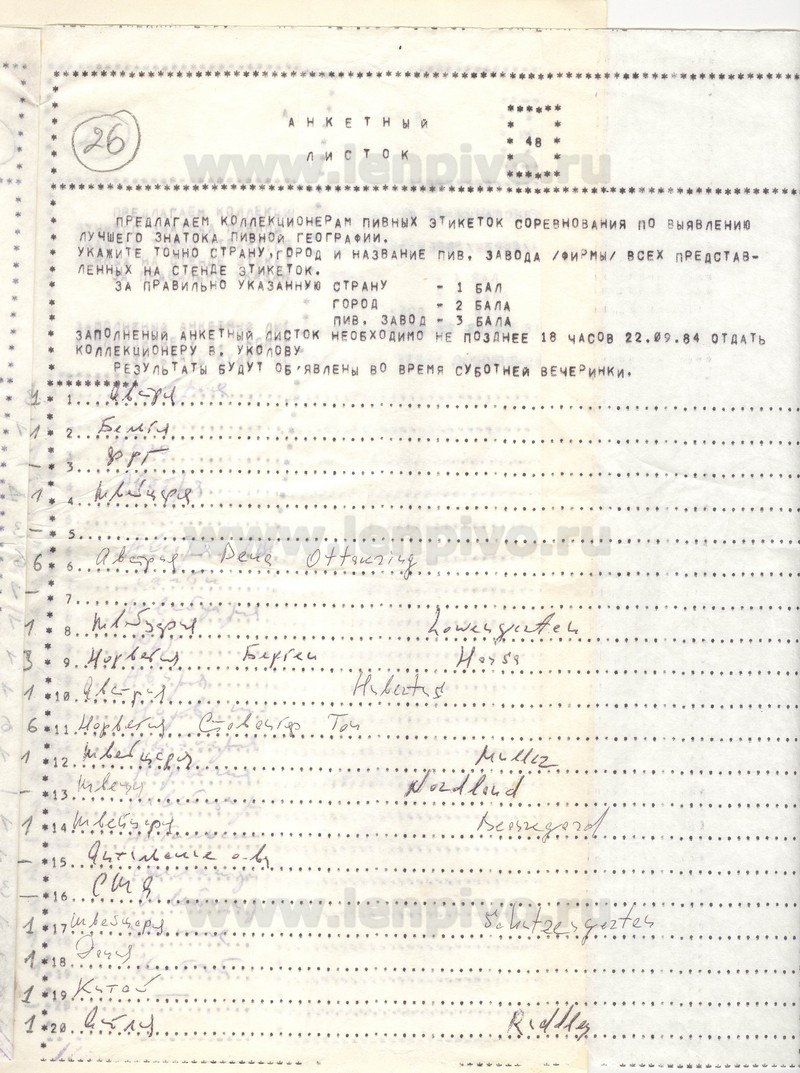 А Н К Е Т Н Ы Й
26
48
Л И С Т О К
www.lenpivo.ru
ПРЕДЛАГАЕМ КОЛЛЕКЦИОНЕРАМ ПИВНЫХ ЭТИКЕТОК СОРЕВНОВАНИЯ ПО ВЫЯВЛЕНИЮ
ЛУЧШЕГО ЗНАТОКА ПИВНОЙ ГЕОГРАФИИ.
УКАЖИТЕ ТОЧНО СТРАНУ,ГОРОД И НАЗВАНИЕ ПИВ. ЗАВОДА /ФИРМЫ/ ВСЕХ ПРЕДСТАВ-
ЛЕННЫХ НА СТЕНДЕ ЭТИКЕТОК.
ЗА ПРАВИЛЬНО УКАЗАННУЮ СТРАНУ - 1 БАЛ
ГОРОД - 2 БАЛА
ПИВ. ЗАВОД - 3 БАЛА
ЗАПОЛНЕНЫЙ АНКЕТНЫЙ ЛИСТОК НЕОБХОДИМО НЕ ПОЗДНЕЕ 18 ЧАСОВ 22.09.84 ОТДАТЬ
КОЛЛЕКЦИОНЕРУ В. УКОЛОВУ
РЕЗУЛЬТАТЫ БУДУТ ОБ'ЯВЛЕНЫ ВО ВРЕМЯ СУБОТНЕЙ ВЕЧЕРИНКИ.
1 * 1.
1 * 2.
— * 3. ФРГ
1 * 4.
— * 5.
www.lenpivo.ru
6 * 6. Австрия Вена Ottakring
— * 7.
1 * 8.
3 * 9. Норвегия Берген Hansa
1 *10. Австрия Hubertus
6 *11. Норвегия Ставангер Тоu
1 *12. Muller
— *13. Nordland
1 *14. Beauregard
— *15. Антильские о-ва
— *16. США
www.lenpivo.ru
1 *17. Schutzengarten
1 *18.
1 *19. Китай
1 *20. Ridley